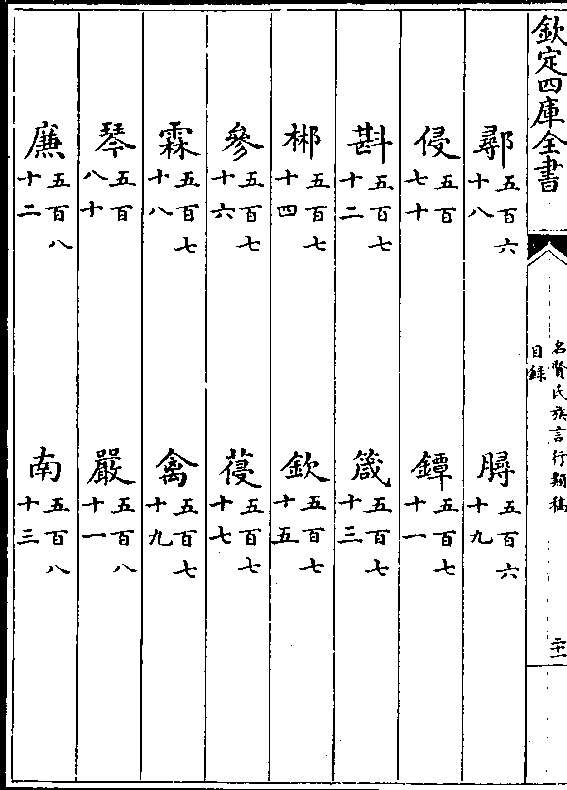 欽定四庫全書
名賢氏族言行類稿
目錄
二十一
鄩五百六十八
𦠅五百六十九
侵五百七十
鐔五百七十一
斟五百七十二
箴五百七十三
郴五百七十四
欽五百七十五
參五百七十六
葠五百七十七
霖五百七十八
禽五百七十九
琴五百八十
嚴五百八十一
廉五百八十二
南五百八十三